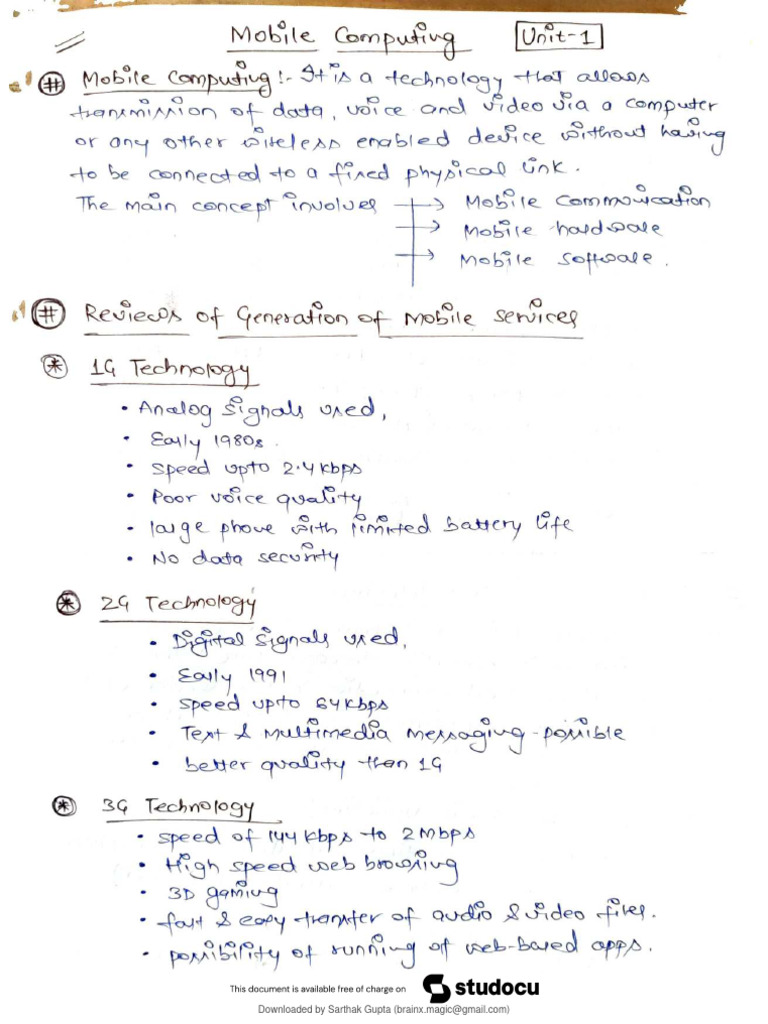 Mobile Computing Unit-1
# Mobile Computing :- It is a technology that allows
transmission of data, voice and video via a computer
or any other wireless enabled device without having
to be connected to a fixed physical link.
The main concept involves → Mobile Communication
→ Mobile hardware
→ Mobile software.
# Reviews of Generation of Mobile services
* 1G Technology
• Analog signals used,
• Early 1980s.
• speed upto 2.4 kbps
• Poor voice quality
• large phone with limited battery life
• No data security
* 2G Technology
• Digital signals used,
• Early 1991
• speed upto 64 kbps
• Text & Multimedia messaging-possible
• better quality than 1G
* 3G Technology
• speed of 144 kbps to 2 Mbps
• High speed web browsing
• 3D gaming
• fast & easy transfer of audio & video files.
• possibility of running of web-based apps.
This document is available free of charge on studocu
Downloaded by Sarthak Gupta (brainx.magic@gmail.com)